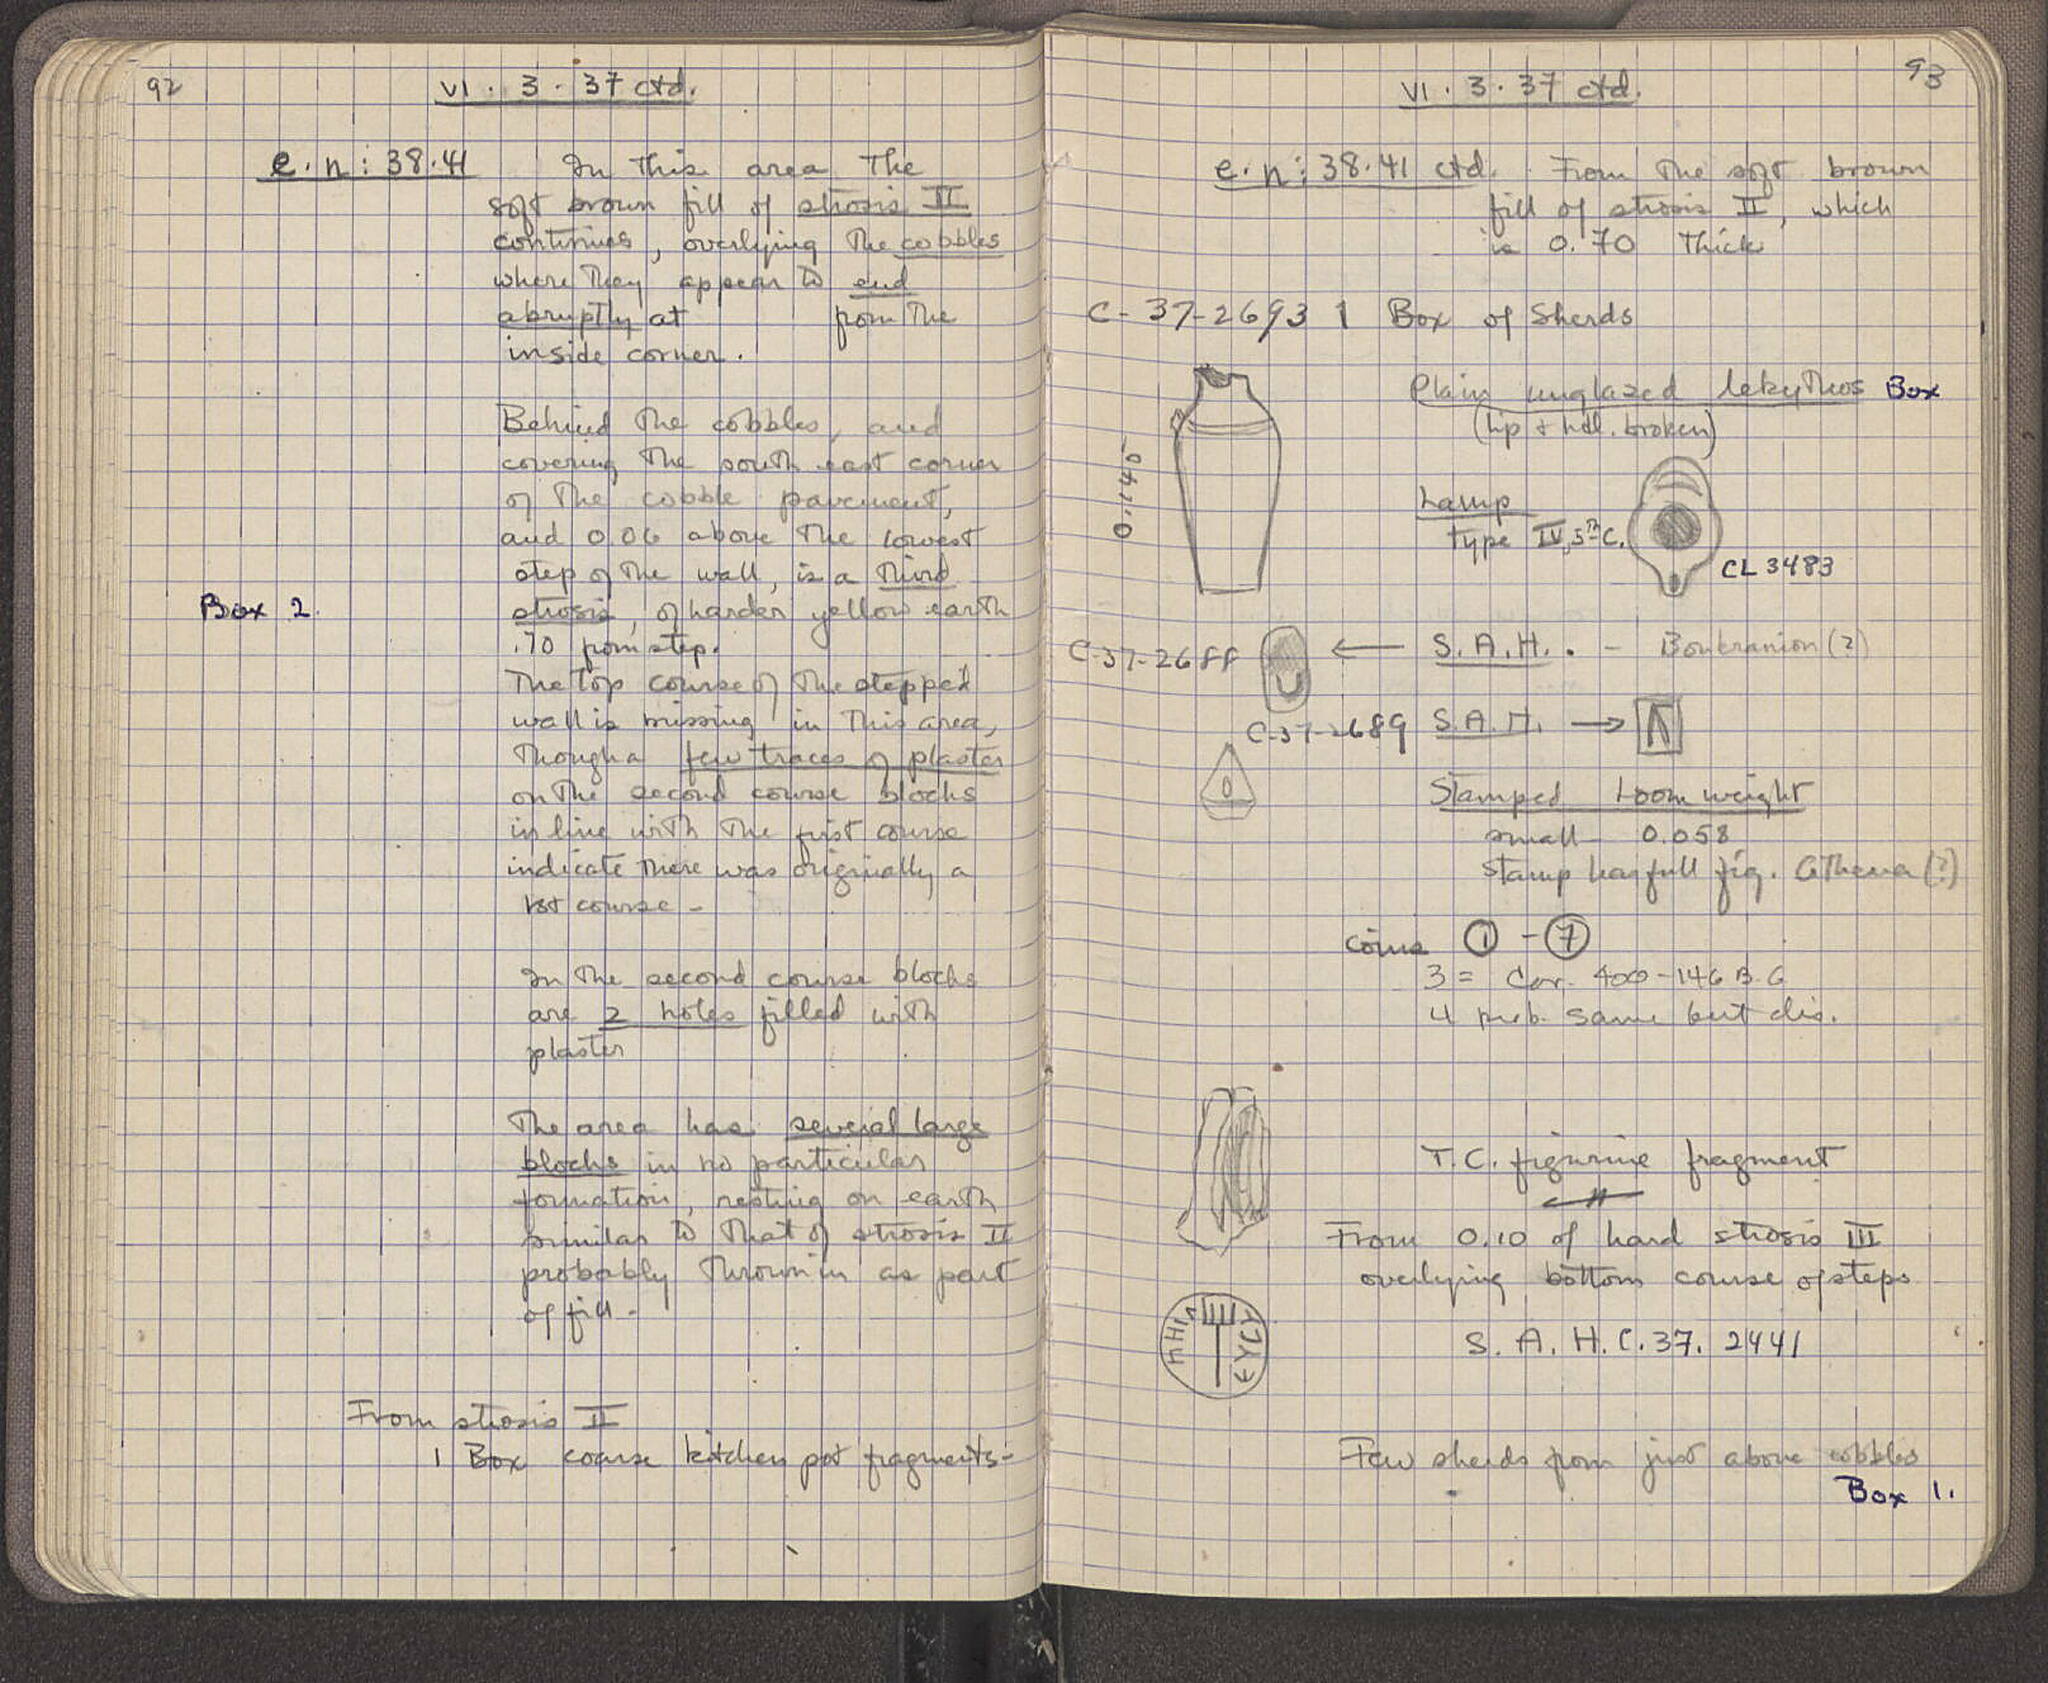 92
VI . 3 . 37 ctd.
e. n: 38.41 In this area the
soft brown fill of strosis II
continues, overlying the cobbles
where they appear to end
abruptly at from the
inside corner.
Behind the cobbles, and
covering the south east corner
of the cobble pavement,
and 0.06 above the lowest
step of the wall, is a third
Box 2.
strosis, of harder yellow earth
.70 from step.
The top course of the stepped
wall is missing in this area,
though a few traces of plaster
on the second course blocks
in line with the first course
indicate there was originally a
1st course -
In the second course blocks
are 2 holes filled with
plaster
The area has several large
blocks in no particular
formation, resting on earth
similar to that of strosis II
probably thrown in as part
of fill -
From strosis II
1 Box coarse kitchen pot fragments-
93
VI . 3 . 37 ctd.
e. n: 38.41 ctd. From the soft brown
fill of strosis II, which
is 0.70 thick
C-37-2693 1 Box of Sherds
Plain unglazed lekythos Box
(lip + hdl. broken)
0.140
Lamp
type IV, 5th C.
CL 3483
C-37-2688 ← S.A.H. . - Boukranion (?)
C-37-2689 S.A.H. →
Stamped Loom weight
small - 0.058
Stamp has full fig. Athena (?)
coins ① - ⑦
3 = Cor. 400-146 B.C
4 prob. same but dis.
T.C. figurine fragment
From 0.10 of hard strosis III
overlying bottom course of steps
S. A. H. C. 37. 2441
Few sherds from just above cobbles
Box 1.